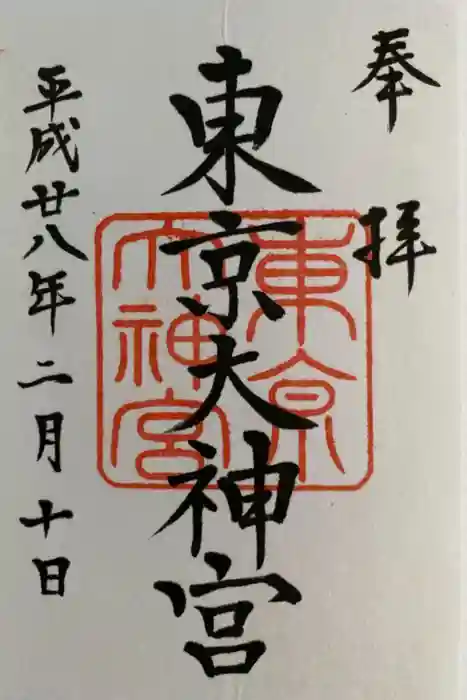 奉拝
東京大神宮
東京
大神宮
平成廿八年二月十日